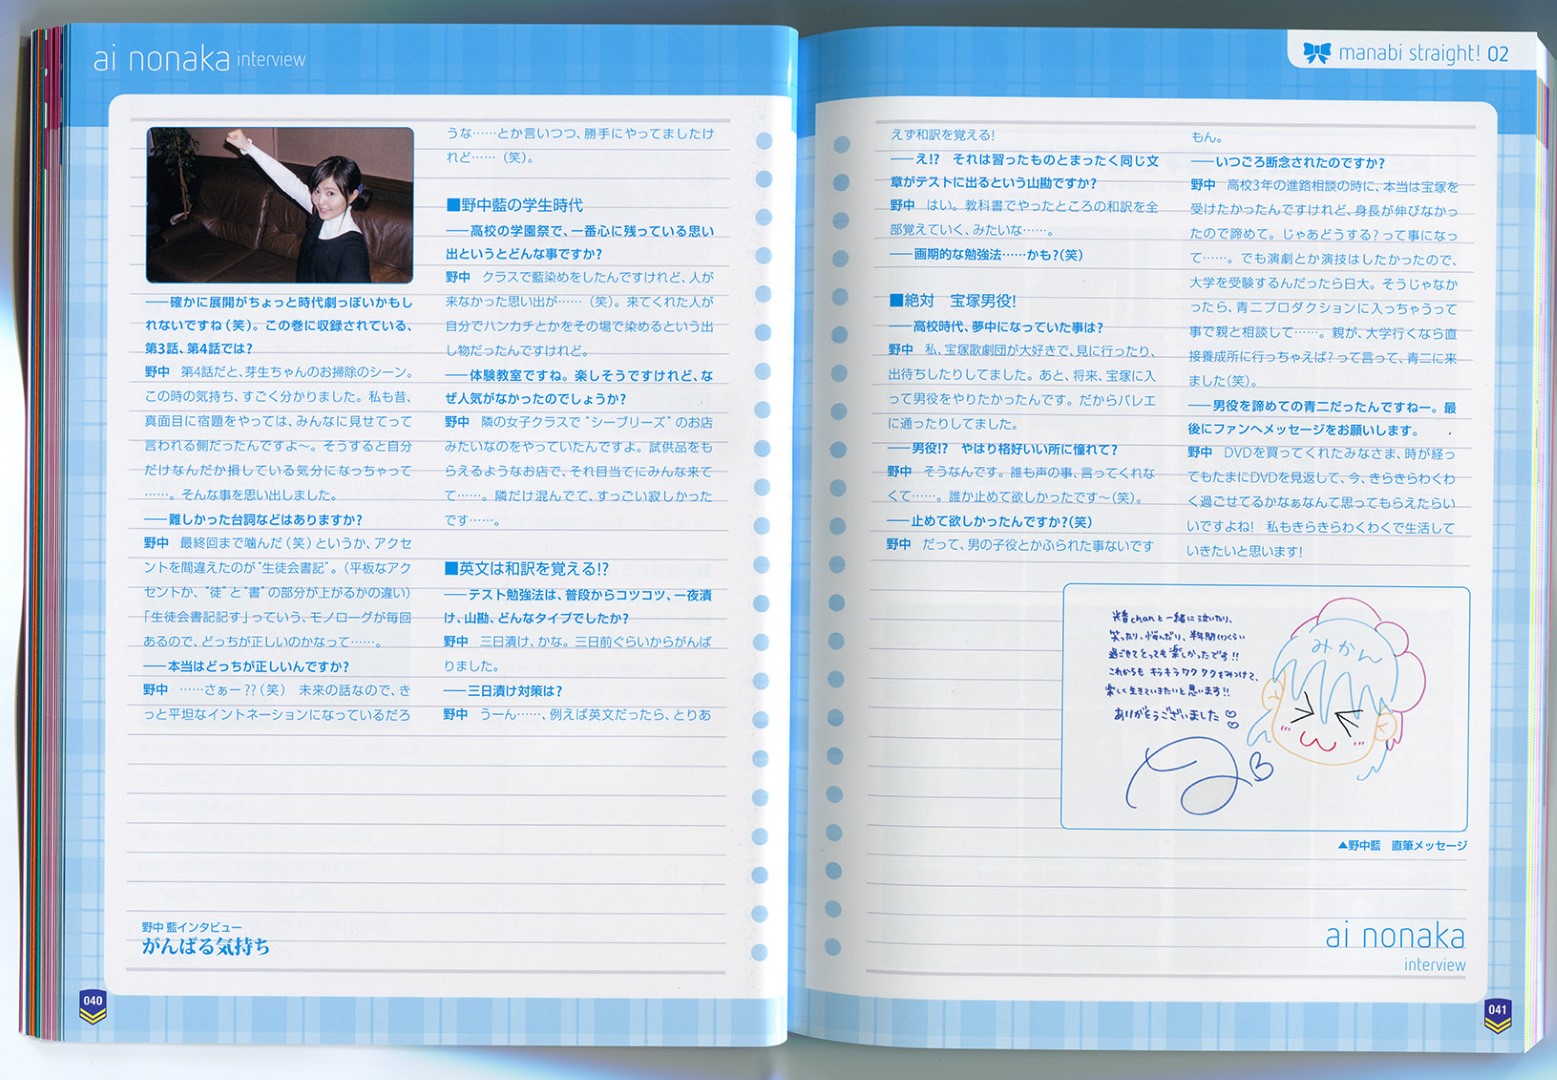 ai nonaka interview
――確かに展開がちょっと時代劇っぽいかもし
れないですね（笑）。この巻に収録されている、
第3話、第4話では?
野中　第4話だと、芽生ちゃんのお掃除のシーン。
この時の気持ち、すごく分かりました。私も昔、
真面目に宿題をやっては、みんなに見せてって
言われる側だったんですよ～。そうすると自分
だけなんだか損している気分になっちゃって
……。そんな事を思い出しました。
――難しかった台詞などはありますか?
野中　最終回まで噛んだ（笑）というか、アクセ
ントを間違えたのが“生徒会書記”。（平板なアク
セントか、“徒”と“書”の部分が上がるかの違い）
「生徒会書記記す」っていう、モノローグが毎回
あるので、どっちが正しいのかなって……。
――本当はどっちが正しいんですか?
野中　……さぁー??（笑）　未来の話なので、き
っと平坦なイントネーションになっているだろ
うな……とか言いつつ、勝手にやってましたけ
れど……（笑）。
■野中藍の学生時代
――高校の学園祭で、一番心に残っている思い
出というとどんな事ですか?
野中　クラスで藍染めをしたんですけれど、人が
来なかった思い出が……（笑）。来てくれた人が
自分でハンカチとかをその場で染めるという出
し物だったんですけれど。
――体験教室ですね。楽しそうですけれど、な
ぜ人気がなかったのでしょうか?
野中　隣の女子クラスで“シーブリーズ”のお店
みたいなのをやっていたんですよ。試供品をも
らえるようなお店で、それ目当てにみんな来て
て……。隣だけ混んでて、すっごい寂しかった
です……。
■英文は和訳を覚える!?
――テスト勉強法は、普段からコツコツ、一夜漬
け、山勘、どんなタイプでしたか?
野中　三日漬け、かな。三日前ぐらいからがんば
りました。
――三日漬け対策は?
野中　うーん……、例えば英文だったら、とりあ
野中 藍インタビュー
がんばる気持ち
040
manabi straight! 02
えず和訳を覚える!
――え!?　それは習ったものとまったく同じ文
章がテストに出るという山勘ですか?
野中　はい。教科書でやったところの和訳を全
部覚えていく、みたいな……。
――画期的な勉強法……かも?（笑）
■絶対　宝塚男役!
――高校時代、夢中になっていた事は?
野中　私、宝塚歌劇団が大好きで、見に行ったり、
出待ちしたりしてました。あと、将来、宝塚に入
って男役をやりたかったんです。だからバレエ
に通ったりしてました。
――男役!?　やはり格好いい所に憧れて?
野中　そうなんです。誰も声の事、言ってくれな
くて……。誰か止めて欲しかったです～（笑）。
――止めて欲しかったんですか?（笑）
野中　だって、男の子役とかふられた事ないです
もん。
――いつごろ断念されたのですか?
野中　高校3年の進路相談の時に、本当は宝塚を
受けたかったんですけれど、身長が伸びなかっ
たので諦めて。じゃあどうする? って事になっ
て……。でも演劇とか演技はしたかったので、
大学を受験するんだったら日大。そうじゃなか
ったら、青二プロダクションに入っちゃうって
事で親と相談して……。親が、大学行くなら直
接養成所に行っちゃえば? って言って、青二に来
ました（笑）。
――男役を諦めての青二だったんですねー。最
後にファンへメッセージをお願いします。
野中　DVDを買ってくれたみなさま、時が経っ
てもたまにDVDを見返して、今、きらきらわくわ
く過ごせてるかなぁなんて思ってもらえたらい
いですよね!　私もきらきらわくわくで生活して
いきたいと思います!
chanと一緒に泣いたり、
笑ったり、悩んだり、半年間くらい
過ごせてとっても楽しかったです!!
これからも キラキラワクワクをみつけて、
楽しく生きていきたいと思います!!
ありがとうございました♡
みかん
▲野中藍　直筆メッセージ
ai nonaka
interview
041